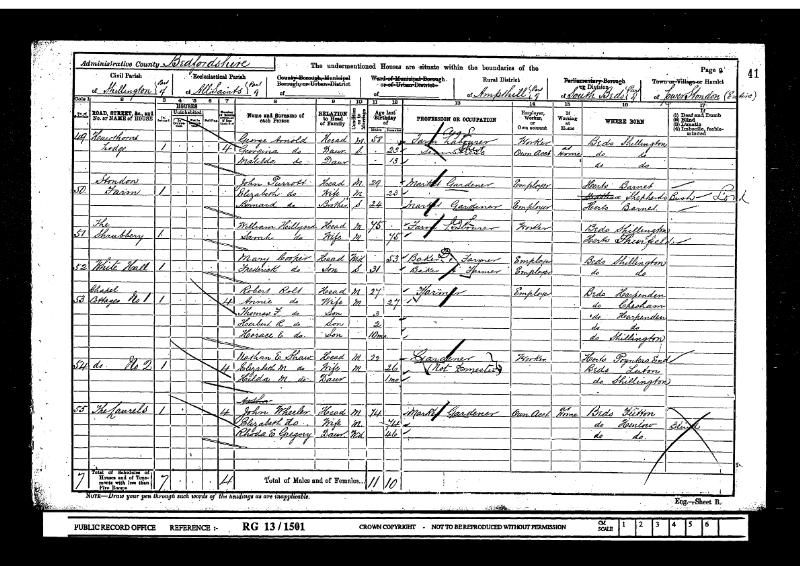 Administrative County Bedfordshire
The undermentioned Houses are situate within the boundaries of the
Page 9
41
Civil Parish
of Shillington
Ecclesiastical Parish
of All Saints
County Borough, Municipal Borough or Urban District
Ward of Municipal Borough or Urban District
Rural District
of Ampthill
Parliamentary Borough or Division
of South Beds
Town or Village or Hamlet
of Lower Stondon (Entire)
ROAD, STREET, &c., and No. or NAME of HOUSE
HOUSES
Name and Surname of each Person
RELATION to Head of Family
Age last Birthday of
PROFESSION OR OCCUPATION
Employer, Worker, or Own account
If Working at Home
WHERE BORN
(1) Deaf and Dumb
(2) Blind
(3) Lunatic
(4) Imbecile, feeble-minded
49 Hawthorne Lodge 1 4 George Arnold Head M 58 Farm Labourer Worker Beds Shillington
Georgina do Daur S 23 Own Acct at Home do do
Matilda do Daur 13 do do
50 Stondon Farm 1 John Parrott Head M 29 Market Gardener Employer Herts Barnet
Elizabeth do Wife M 28 Shepherds Bush Lond
Leonard do Brother S 24 Market Gardener Employer Herts Barnet
51 The Shrubbery 1 William Head M 75 Farm Labourer Worker Beds Shillington
Sarah do Wife M 75 Herts
52 White Hall 1 Mary Cooper Head Wid 53 Baker & Farmer Employer Beds Shillington
Frederick do Son S 31 Baker Farmer Employer do do
53 Chapel Cottages No 1 1 4 Robert Rolt Head M 27 Farmer Employer Beds Harpenden
Annie do Wife M 27 do Chesham
Thomas F do Son 3 do Harpenden
Herbert R do Son 2 do do
Horace E. do Son 10mo do Shillington
54 do No 2 1 4 Nathan E. Shaw Head M 22 Gardener (Not Domestic) Worker Herts Poynters End
Elizabeth M do Wife M 26 Beds Luton
Hilda M. do Daur 1mo do Shillington
55 The Laurels 1 4 John Wheeler Head M 74 Market Gardener Own Acct Home Beds
Elizabeth do Wife M 74 do Henlow Blind
Rhoda E Gregory Daur Wd 46 do do
7 Total of Schedules of Houses and of Tenements with less than Five Rooms 7 4 Total of Males and of Females... 11 10
NOTE—Draw your pen through such words of the headings as are inapplicable.
Eng.—Sheet B.
PUBLIC RECORD OFFICE REFERENCE :- RG 13/1501 CROWN COPYRIGHT - NOT TO BE REPRODUCED WITHOUT PERMISSION CM SCALE 1 2 3 4 5 6